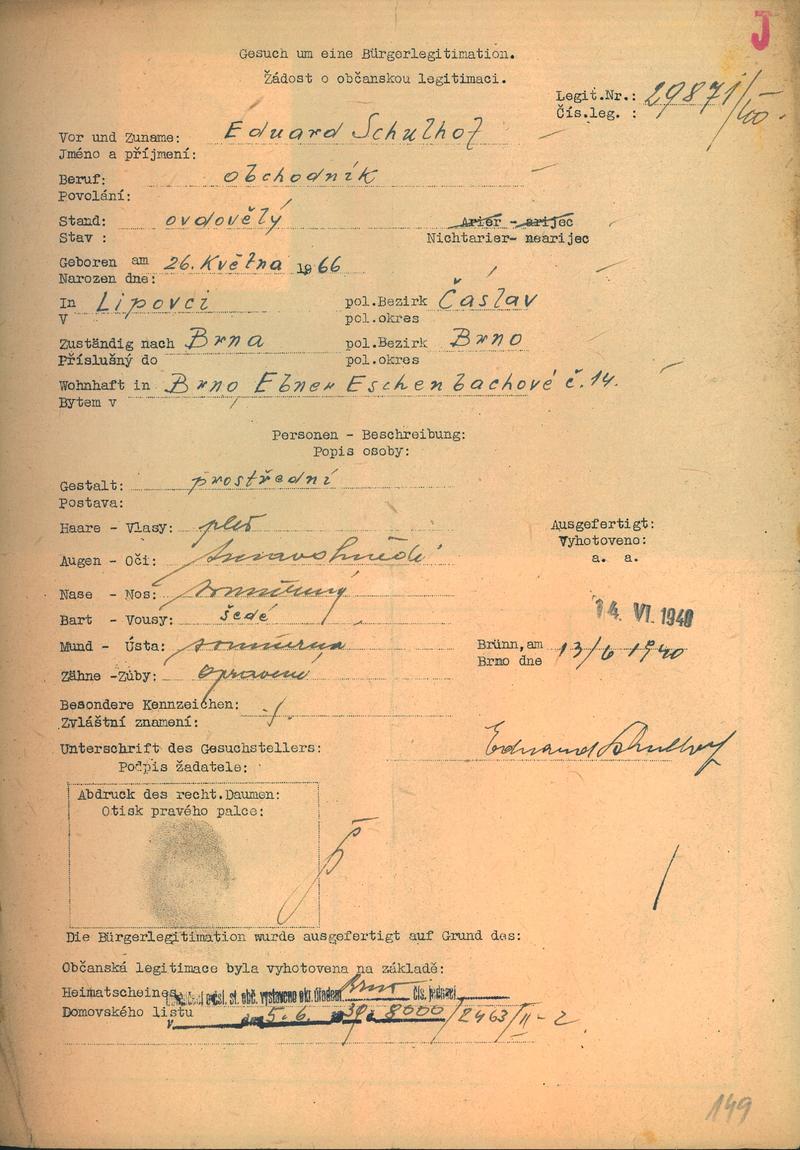 J
Gesuch um eine Bürgerlegitimation.
Žádost o občanskou legitimaci.
Legit.Nr.: 29871/40.
Čís.leg. :
Vor und Zuname: Eduard Schulhof
Jméno a příjmení:
Beruf: obchodník
Povolání:
Stand: ovdovělý Arier - arijec
Stav : Nichtarier- nearijec
Geboren am 26. Května 1966
Narozen dne:
In Lipovci pol.Bezirk Čáslav
V pol.okres
Zuständig nach Brna pol.Bezirk Brno
Příslušný do pol.okres
Wohnhaft in Brno Ebner Eschenbachové č. 14.
Bytem v
Personen - Beschreibung:
Popis osoby:
Gestalt: prostřední
Postava:
Haare - Vlasy: pleš
Ausgefertigt:
Vyhotoveno:
a. a.
Augen - Oči: tmavohnědé
Nase - Nos: souměrný
Bart - Vousy: šedé
14. VI. 1940
Mund - Ústa: souměrná
Brünn, am 13/6 1940
Brno dne
Zähne -Zúby: opravené
Besondere Kennzeichen:
Zvláštní znamení:
Unterschrift des Gesuchstellers: Eduard Schulhof
Podpis žadatele:
Abdruck des recht.Daumen:
Otisk pravého palce:
Die Bürgerlegitimation wurde ausgefertigt auf Grund des:
Občanská legitimace byla vyhotovena na základě:
Heimatscheines st. obč. vystaveno okr. úřadem Brno čís. jednací
Domovského listu
v 5. 6. 39 8000/2463/II-2
149